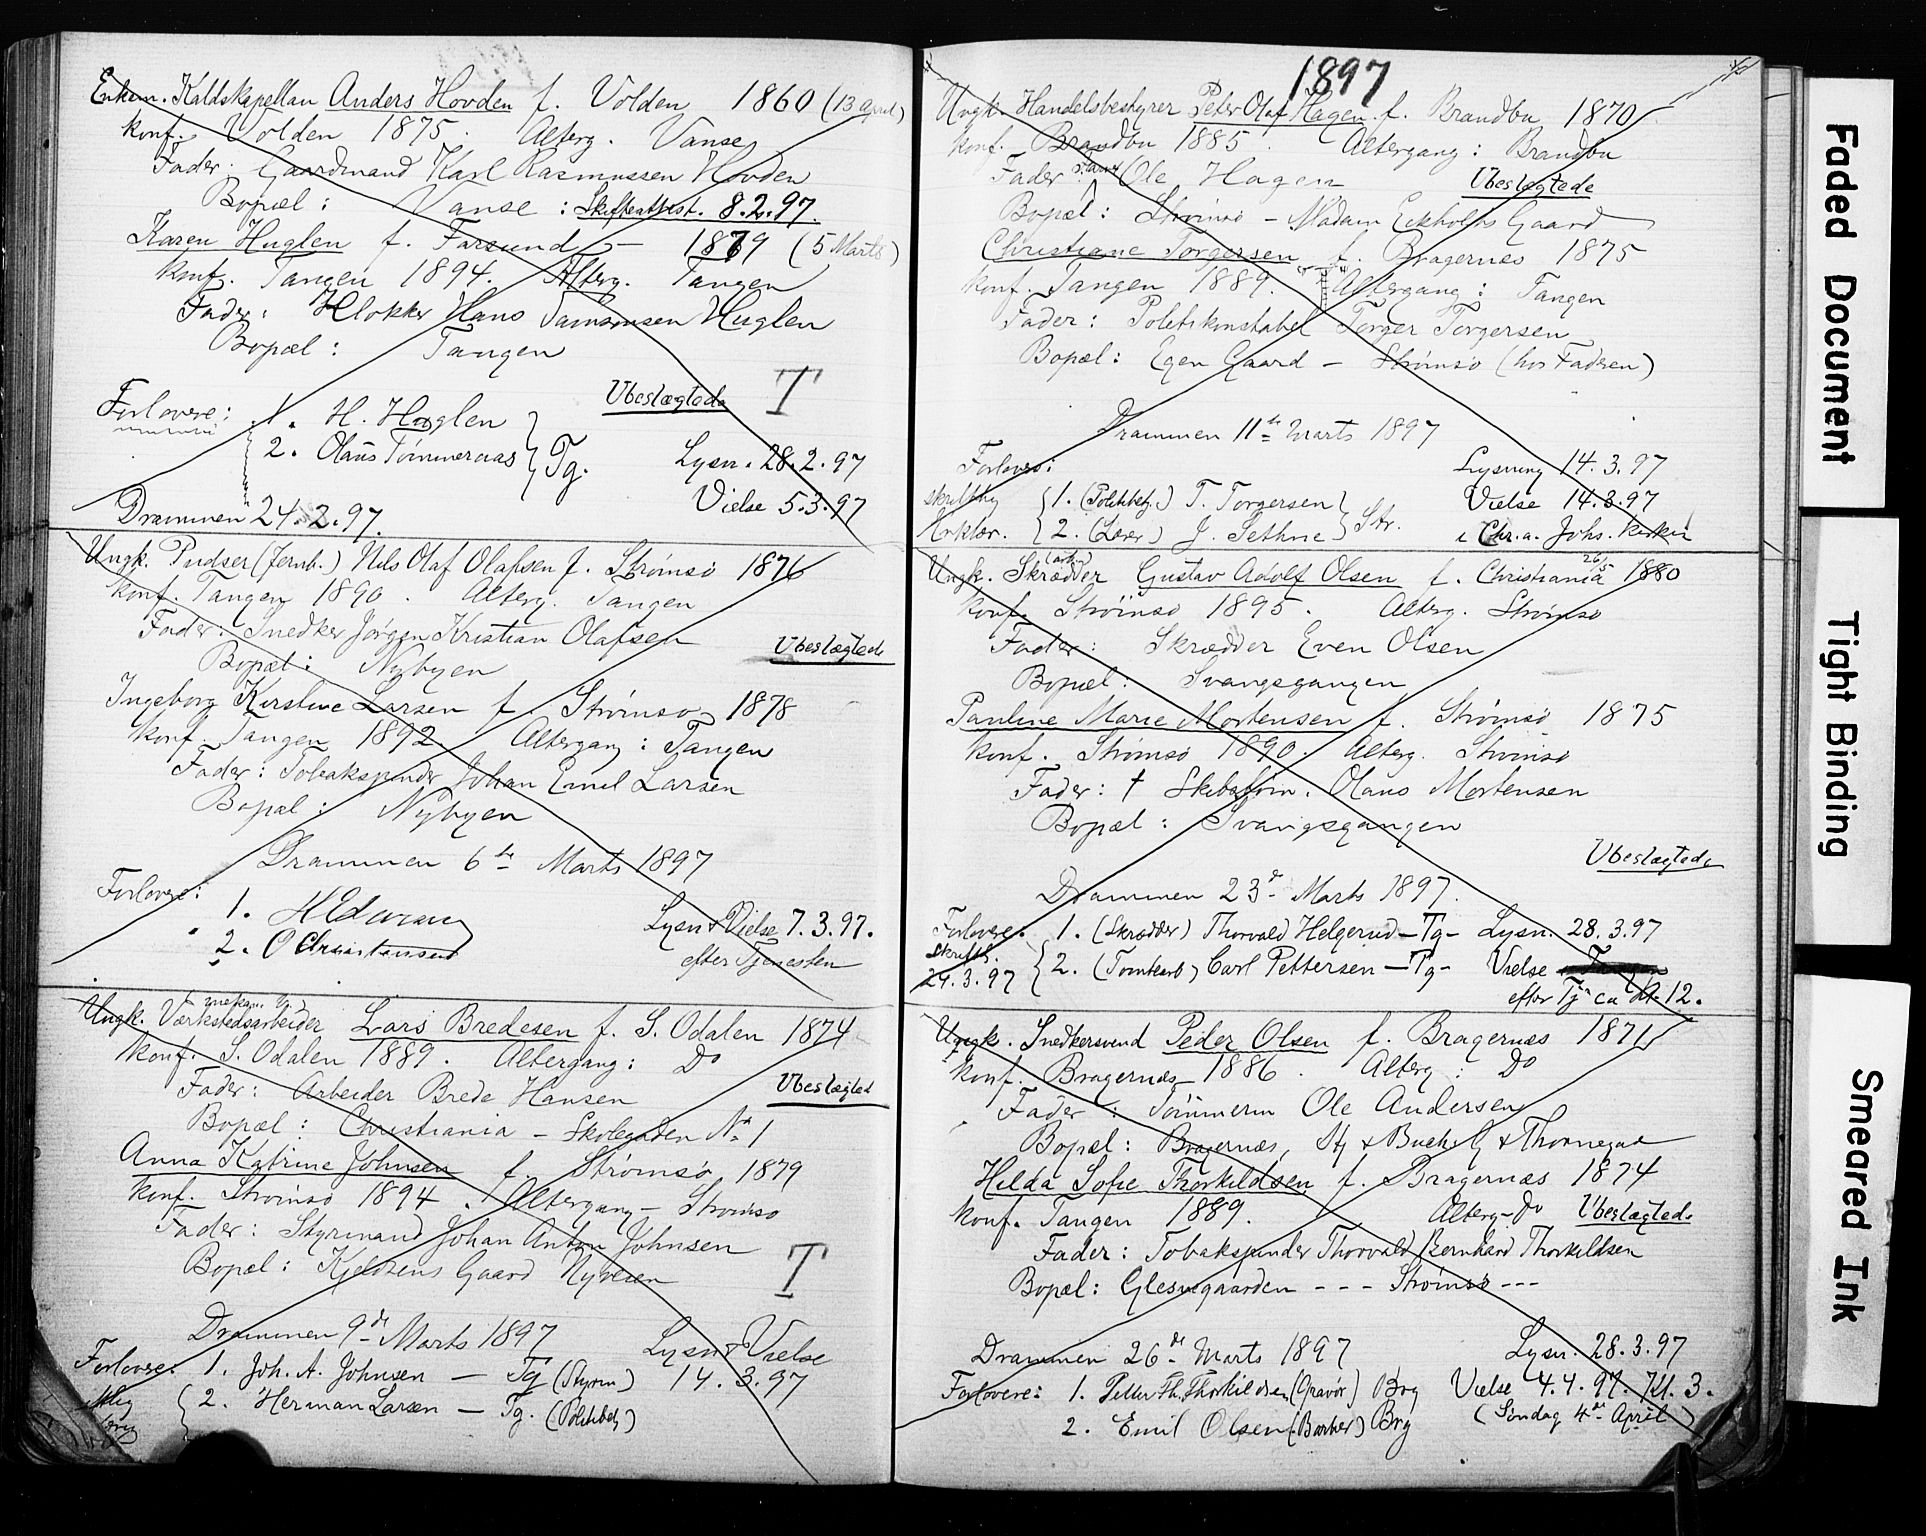 Enkem. Kaldskapellan Anders Hovden f. Volden 1860 (13 april)
konf. Volden 1875. Alterg. Vanse
Fader: Gaardmand Karl Rasmussen Hovden
Bopæl: Vanse: Skifteattest. 8.2.97.
Karen Huglen f. Farsund — 1879 (5 Marts)
konf. Tangen 1894. Alterg. Tangen
Fader: Klokker Hans Huglen
Bopæl: Tangen
Ubeslægtede T
Forlovere: 1. H. Huglen
2. Olaus Tømmeraas Tg. Lysn. 28.2.97
Vielse 5.3.97
Drammen 24.2.97.
Ungk. Pudser (Jernb.) Nils Olaf Olafsen f. Strømsø 1876
konf. Tangen 1890. Alterg. Tangen
Fader: Snedker Jørgen Kristian Olafsen
Ubeslægtede
Bopæl: Nybyen
Ingeborg Kirstine Larsen f. Strømsø 1878
konf. Tangen 1892 Altergang: Tangen
Fader: Tobakspinder Johan Emil Larsen
Bopæl: Nybyen
Drammen 6te Marts 1897
Forlovere: 1.
Lysn & Vielse 7.3.97.
2. O Christensen
efter Tjenesten
mekan. V.
Ungk. Værkstedsarbeider Lars Bredesen f. S. Odalen 1874
konf. S. Odalen 1889. Altergang: Do
Ubeslægted
Fader: Arbeider Brede Hansen
Bopæl: Christiania – Skolegaden No 1
Anna Katrine Johnsen f. Strømsø 1879
konf. Strømsø 1894. Altergang – Strømsø
Fader: Styrmand Johan Anton Johnsen
Bopæl: Kjeldsens Gaard Nyveien T
Drammen 9de Marts 1897 Lysn & Vielse
Forlovere: 1. Joh. A. Johnsen — Tg (Styrm) 14.3.97
2. Herman Larsen — Tg. (Politibetj)
1897
Ungk. Handelsbestyrer Peter Olaf Hagen f. Brandbu 1870
konf. Brandbu 1885. Altergang: Brandbu
Fader Ole Hagen Ubeslægtede
Bopæl: Strømsø – Madam Eckholts Gaard
Christiane Torgersen f. Bragernes 1875
konf. Tangen 1889. Altergang: Tangen
Fader: Politikonstabel Torger Torgersen
Bopæl: Egen Gaard – Strømsø (hos Faderen)
Drammen 11te Marts 1897
Forlovere: Lysning 14.3.97
skriftlig 1. (Politibetj.) T. Torgersen Vielse 14.3.97
Erklær. 2. (Lærer) J. Sethne Str. i Chr.a. Johs. kirken
(arb.) 26/5
Ungk. Skrædder Gustav Adolf Olsen f. Christiania 1880
konf. Strømsø 1895. Alterg. Strømsø
Fader: Skrædder Even Olsen
Bopæl: Svangsgangen
Pauline Marie Mortensen f. Strømsø 1875
konf. Strømsø 1890. Alterg. Strømsø
Fader: † Skibstøm. Olaus Mortensen
Bopæl: Svangsgangen
Ubeslægtede
Drammen 23de Marts 1897.
Forlovere. 1. (Skrædder) Thorvald Helgerud – Tg – Lysn. 28.3.97
skriftl.
24.3.97 2. (Tomtearb) Carl Pettersen – Tg – Vielse
efter Tjn ca Kl. 12.
Ungk. Snedkersvend Peder Olsen f. Bragernes 1871
konf. Bragernes 1886. Alterg: Do
Fader: Tømmerm Ole Andersen
Bopæl: Bragernes, Hj & Buchs G & Thornegat
Hilda Sofie Thorkildsen f. Bragernes 1874
konf. Tangen 1889. Alterg – Do Ubeslægtede
Fader: Tobakspinder Thorvald Bernhard Thorkildsen
Bopæl: Glesnegaarden - - - Strømsø - - -
Drammen 26de Marts 1897 Lysn. 28.3.97
Forlovere: 1. Petter Th. Thorkildsen (Gravør) Brg Vielse 4.4.97. Kl. 3.
2. Emil Olsen (Barber) Brg (Søndag 4de April)
Faded Document
Tight Binding
Smeared Ink